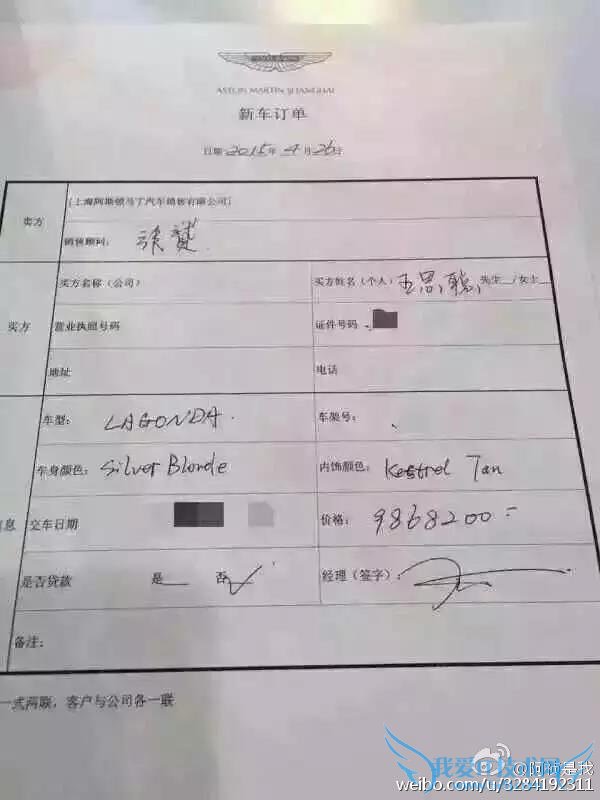 ASTON MARTIN SHANGHAI
新车订单
日期 2015年 4月 26日
卖方
[上海阿斯顿马丁汽车销售有限公司]
销售顾问:
买方
买方名称(公司)
买方姓名(个人) 王思聪 先生__/女士__
营业执照号码
证件号码
地址
电话
息
车型: LAGONDA.
车架号:
车身颜色: Silver Blonde
内饰颜色: Kestrel Tan
交车日期
价格: 9868200-
是否贷款
是__ 否✓
经理(签字):
备注:
一式两联,客户与公司各一联
我爱
weibo.com/u/3284192311